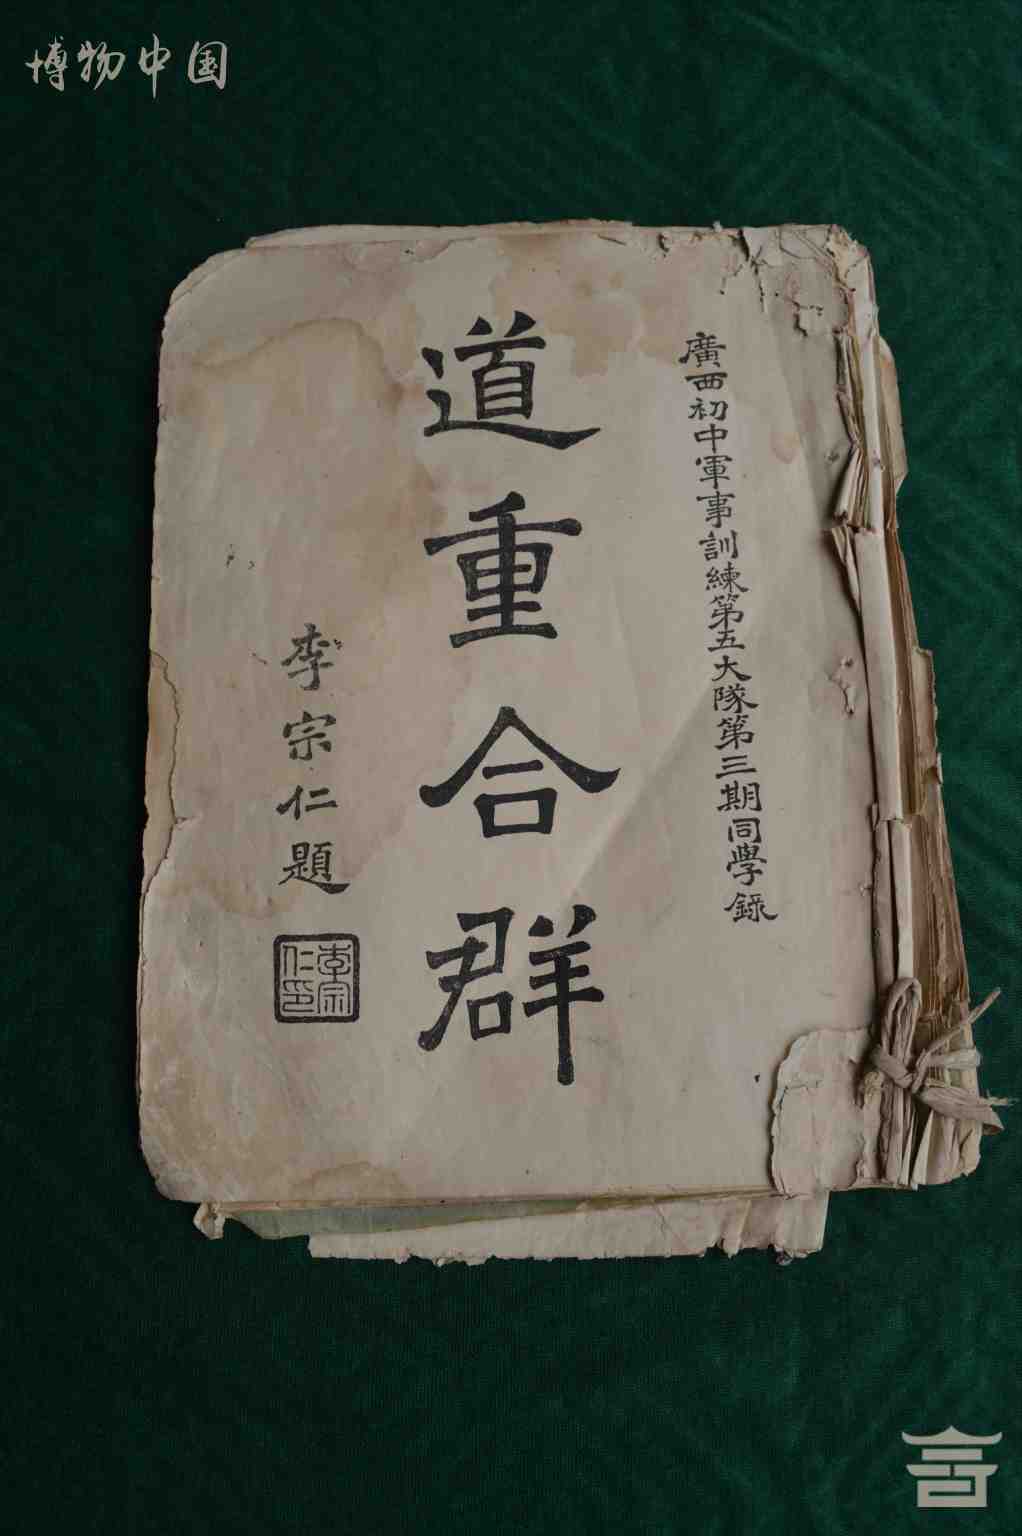 博物中国
廣西初中軍事訓練第五大隊第三期同學錄
道重合群
李宗仁題
李宗仁印